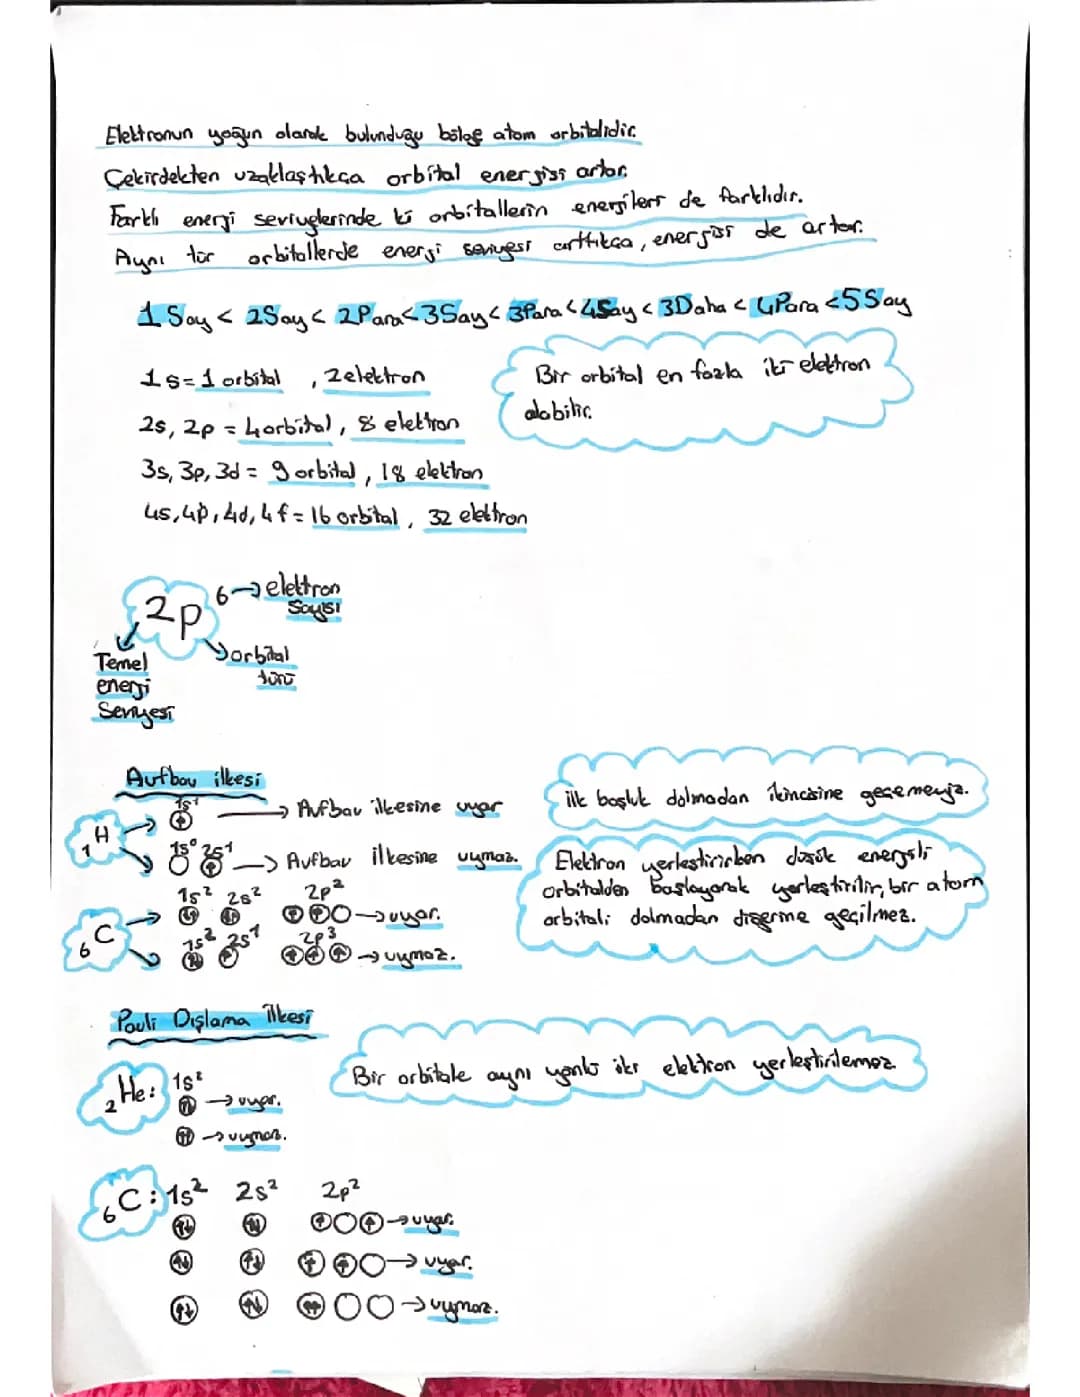 Elektronun yoğun olarak bulunduğu bölge atom orbitalidir.
Çekirdekten uzaklaştıkça orbital enerjisi artar.
Farklı enerji seviyelerinde ki orbitallerin enerjileri de farklıdır.
Aynı tür orbitallerde enerji seviyesi arttıkça, enerjisi de artar.
1 Say < 2Say < 2Para < 3Say < 3Para < 4Say < 3Daha < 4Para < 5Say
1s = 1 orbital , 2 elektron
Bir orbital en fazla iki elektron
alabilir.
2s, 2p = 4 orbital , 8 elektron
3s, 3p, 3d = 9 orbital , 18 elektron
4s, 4p, 4d, 4f = 16 orbital , 32 elektron
2p⁶ → elektron
sayısı
orbital
türü
Temel
enerji
Seviyesi
Aufbau ilkesi
İlk boşluk dolmadan ikincisine geçemeyiz.
₁H
1s¹
→ Aufbau ilkesine uyar
1s⁰ 2s¹ → Aufbau ilkesine uymaz.
Elektron yerleştirirken düşük enerjili
orbitalden başlayarak yerleştirilir, bir atom
orbitali dolmadan diğerine geçilmez.
₆C
1s² 2s² 2p²
→ uyar.
1s² 2s¹ 2p³
→ uymaz.
Pauli Dışlama İlkesi
Bir orbitale aynı yönlü iki elektron yerleştirilemez
₂He: 1s²
→ uyar.
→ uymaz.
₆C: 1s² 2s² 2p²
→ uyar.
→ uyar.
→ uymaz.